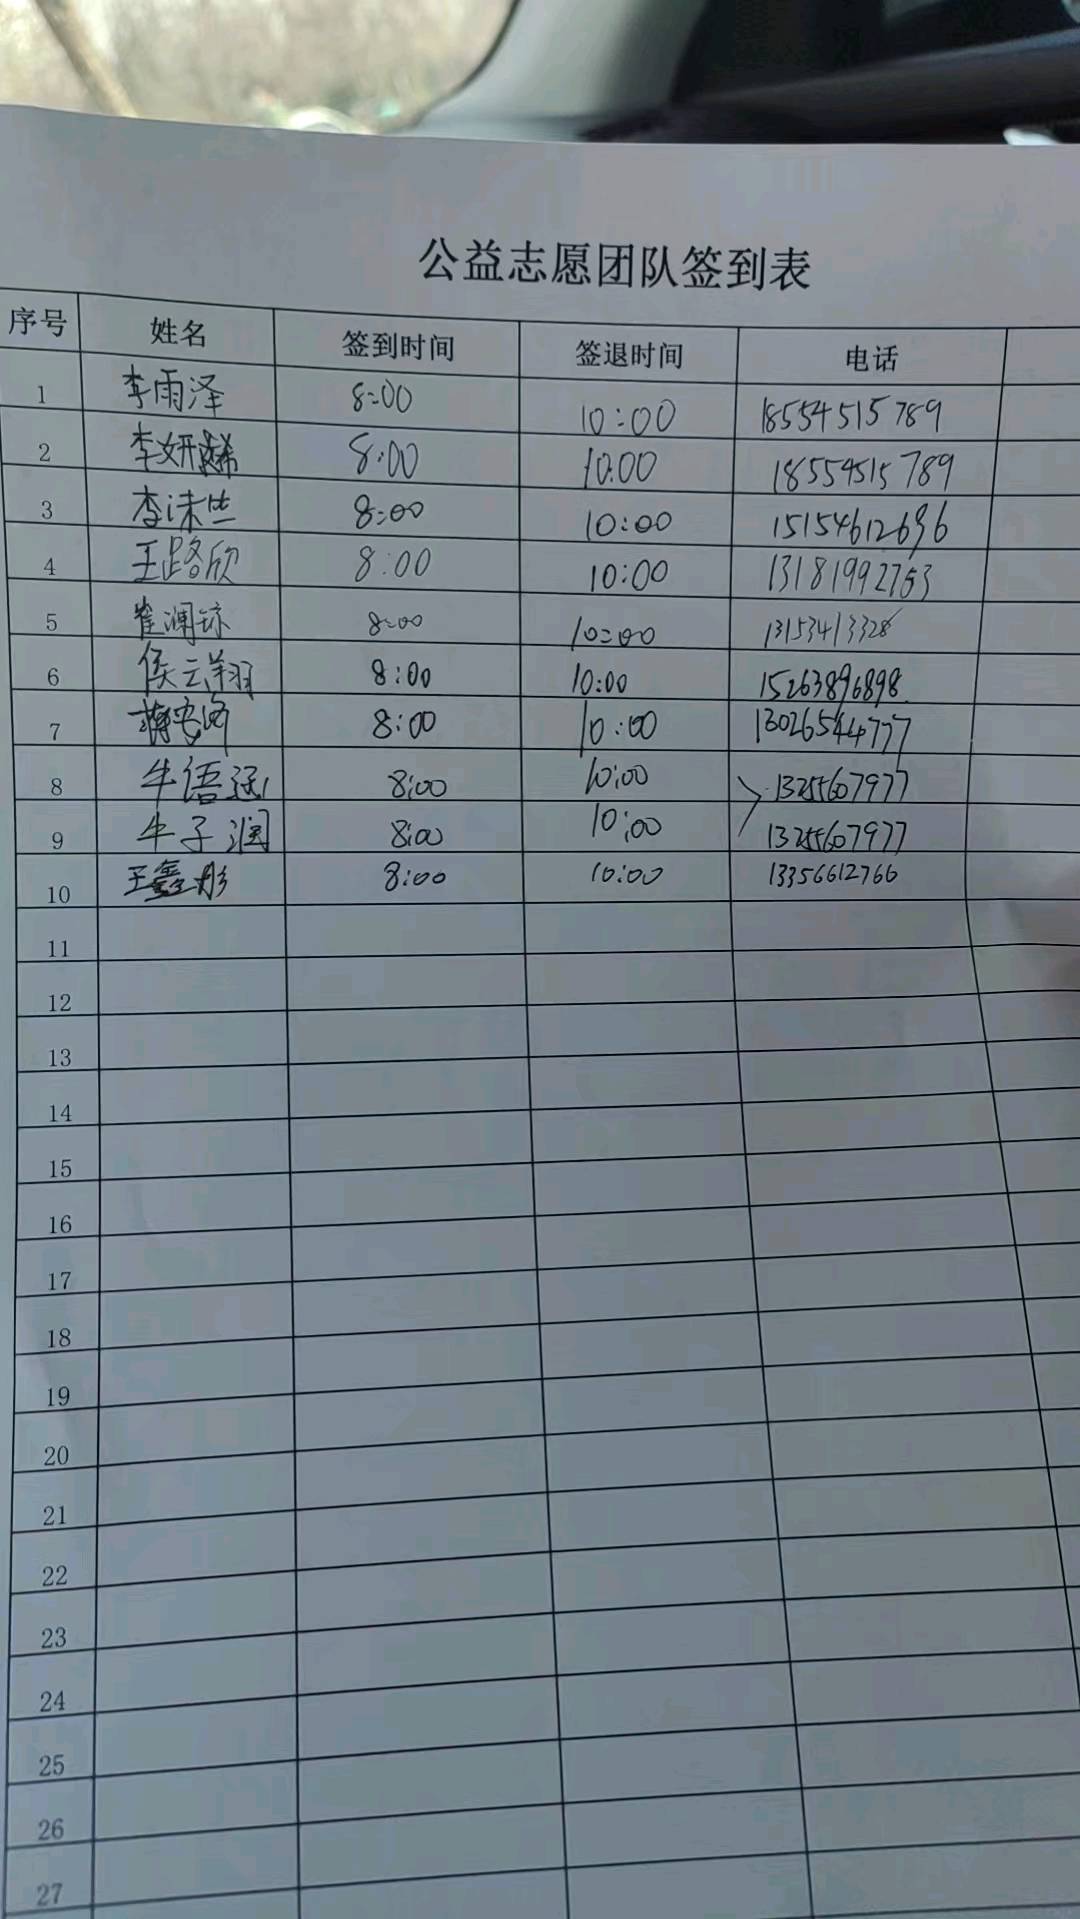 公益志愿团队签到表
序号 姓名 签到时间 签退时间 电话
1 李雨泽 8:00 10:00 18554515789
2 李妍 8:00 10:00 18554515789
3 李沫竺 8:00 10:00 15154612696
4 王路欣 8:00 10:00 13181992753
5 崔澜琼 8:00 10:00 13153413328
6 侯云翔 8:00 10:00 15263896898
7 8:00 10:00 13026544777
8 牛语涵 8:00 10:00 13255607977
9 牛子润 8:00 10:00 13255607977
10 王鑫彤 8:00 10:00 13356612766
11
12
13
14
15
16
17
18
19
20
21
22
23
24
25
26
27